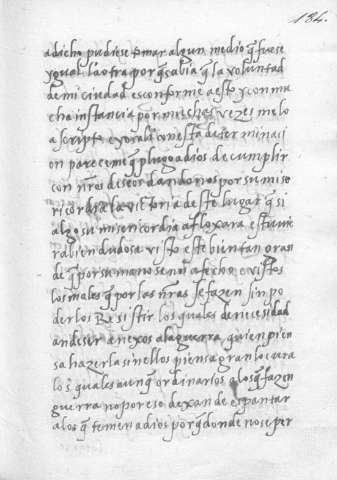 184.
a dicho pudiese tomar algun medio q̃ fuese
ygual la otra porq̃ sabia q̃ la voluntad
de mi ciudad es conforme a esto y con mu
cha instancia por muchas vezes me lo
a scripto e yo ala con esta determinaçi
on pareceme q̃ plugo a dios de cumplir
con nr̃os deseos dandonos por su mise
ricordia la victoria deste lugar q̃ si
algo su misericordia afloxara estuvie
ra bien dudosa visto este buntan oras
de q̃ por su mano se nos a fecho e vistos
los males q̃ por las nr̃as se fazen sin po
derlos Resistir los quales de necesidad
an de ser anexos ala guerra quien pien
sa hazerla sin ellos piensa gran locura
los quales aunq̃ ordinarios a los q̃ fazen
guerra no por eso dexan de espantar
a los q̃ temen a dios porq̃ donde no se per